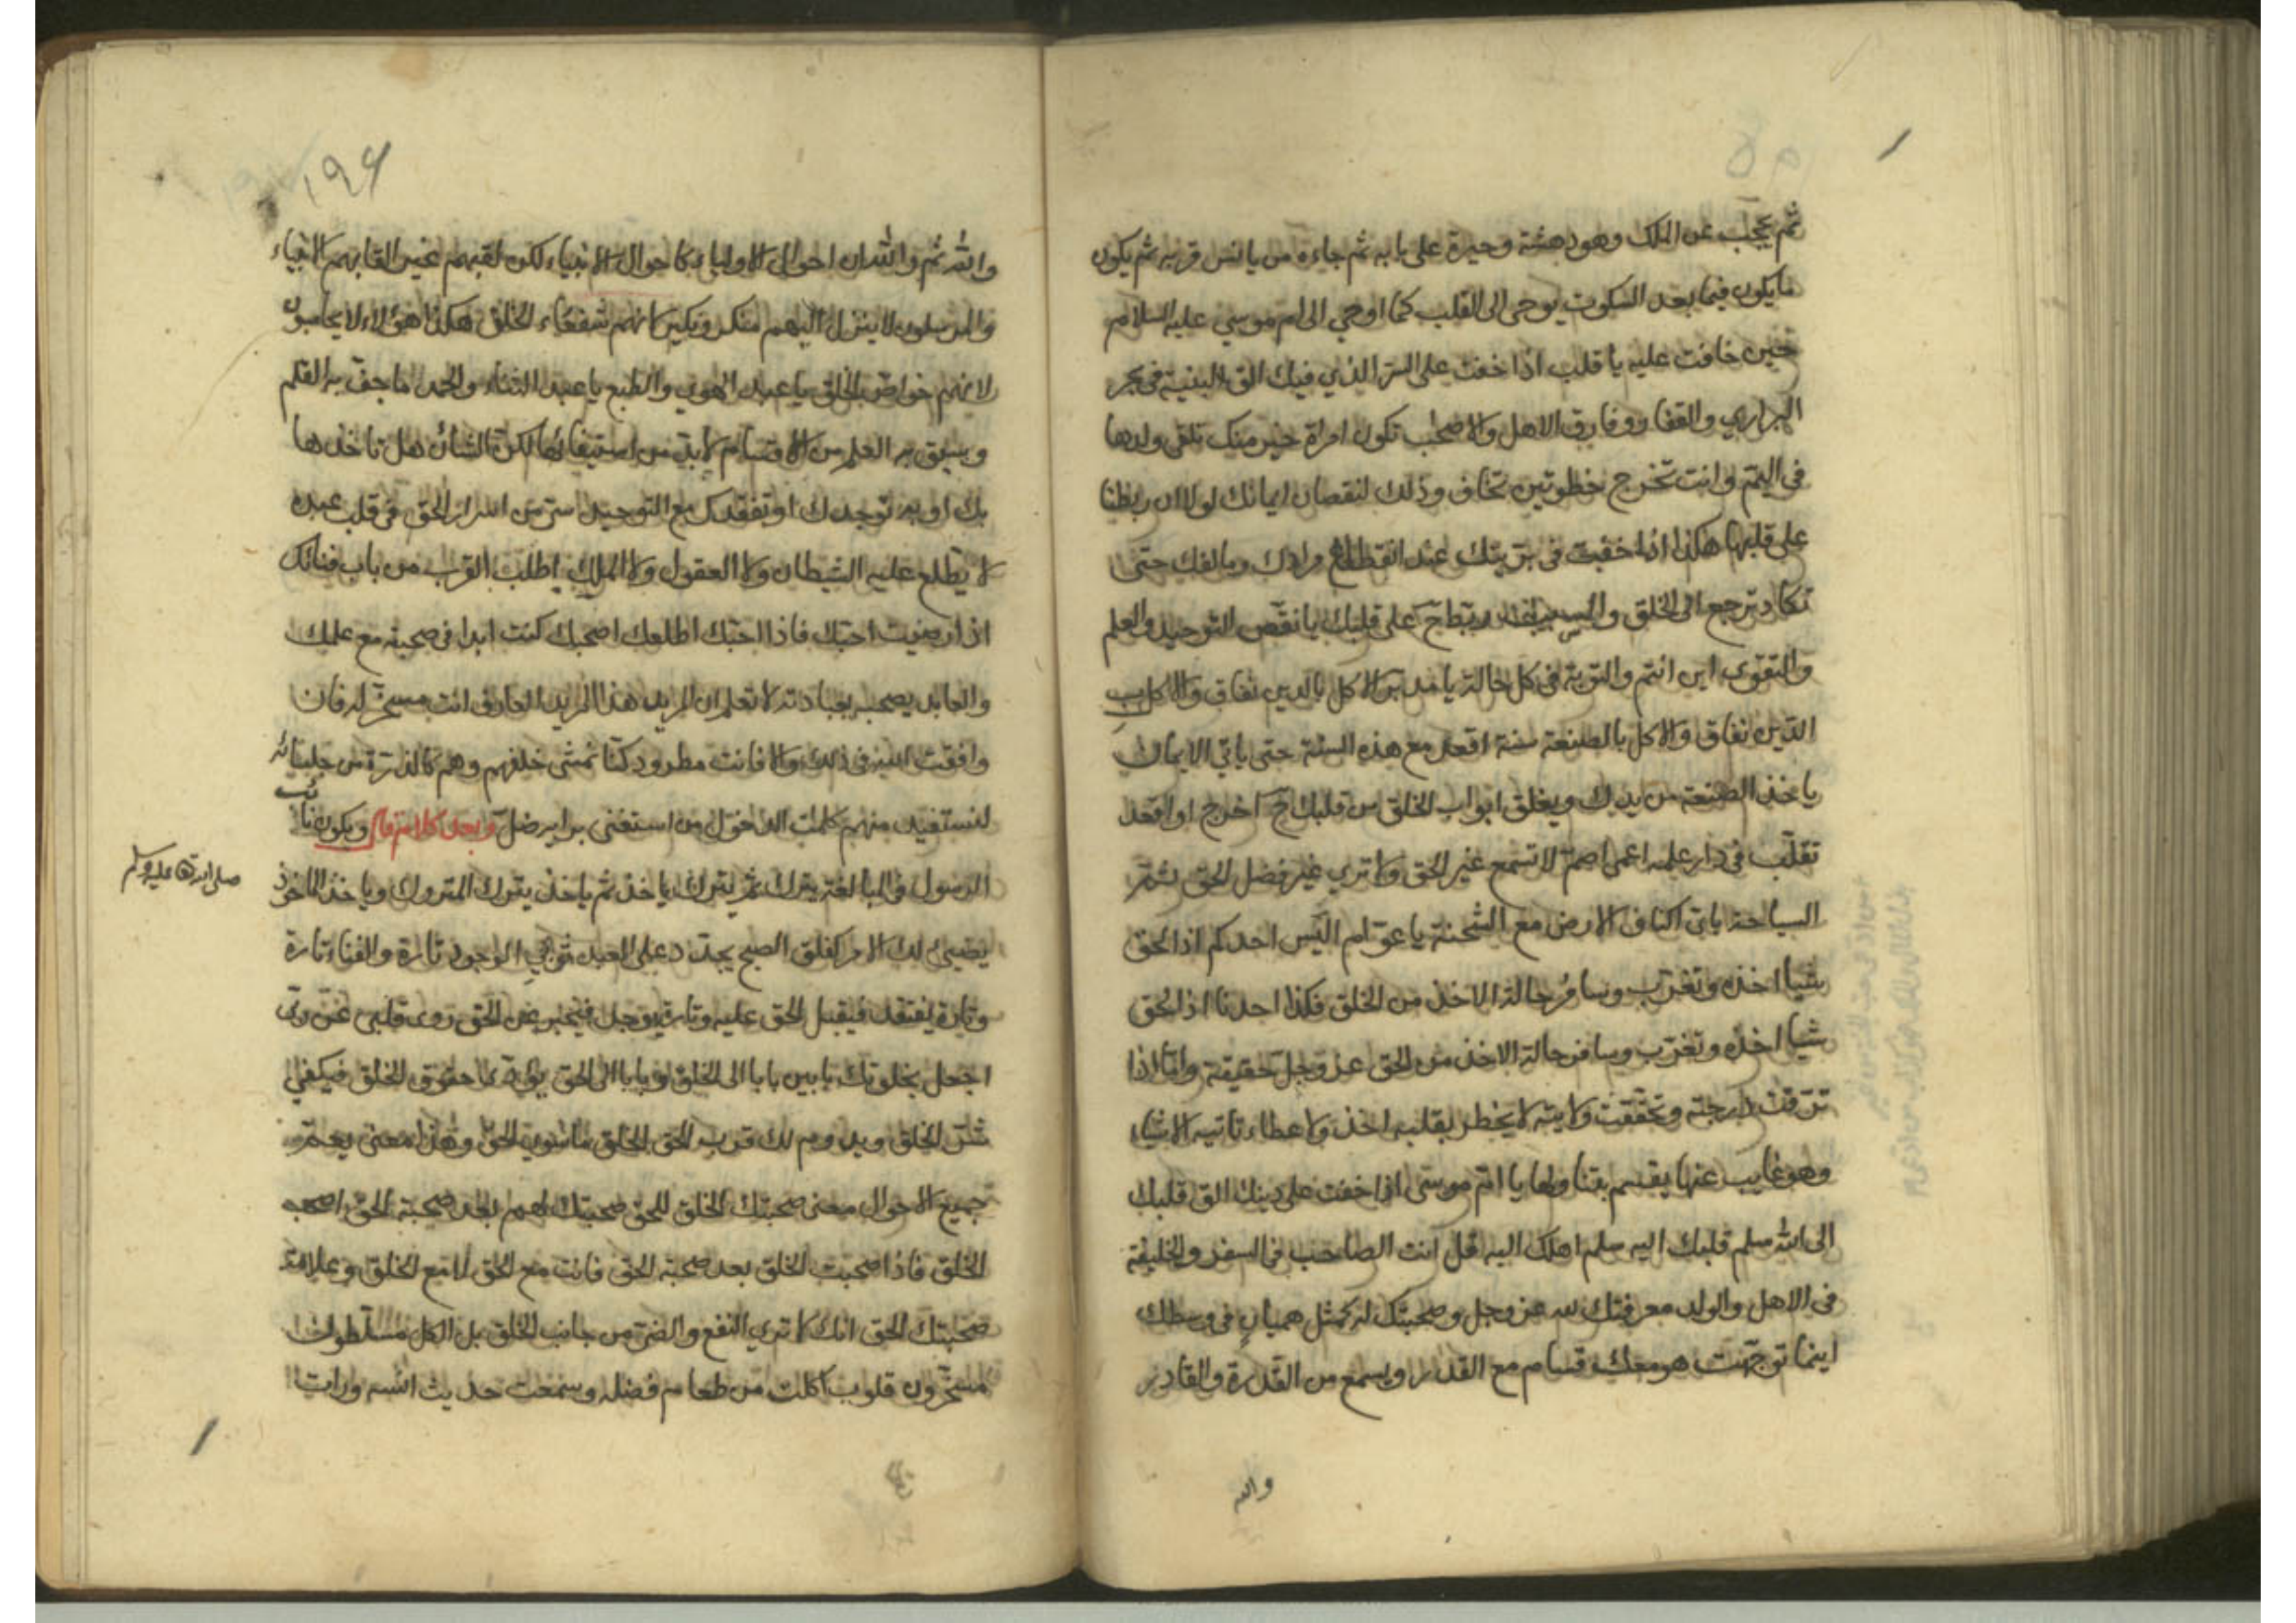 ثم يحجب عن الملك وهو دهشة وحيرة على بابه ثم جاءه من يانس قربه ثم يكون
ما يكون فيما بعد السكوت يوحى الى القلب كما اوحي الى ام موسي عليه السلام
حين خافت عليه يا قلب اذا خفت على السر الذي فيك الق البنية في بحر
البراري والقفار وفارق الاهل والاصحب تكون امراة خير منك تلقى ولدها
في اليم وانت تخرج خطوتين تخاف وذلك لنقصان ايمانك لولا ان ربطنا
على قلبها هكذا اذا خفت في عند انقطاع مرادك ومالفك حتى
تكاد ترجع الى الخلق والسبب على قلبك يا نقص التوحيد والعلم
والتقوى اين انتم والتوبة في كل حالة يا مدبر الاكل بالدين نفاق والاكل ب
الدين نفاق والاكل بالصنعة سنة اقعد مع هذه السنة حتى ياتي الايمان
ياخذ الصنعة من يدك ويغلق ابواب الخلق من قلبك ح اخرج او اقعد
تقلب في دار علمه اعمى اصم لا تسمع غير الحق ولا تري غير فضل الحق
السياحة ياتى اكناف الارض مع الشحنة يا عوام اليس احدكم اذا لحق
شيا اخذه وتغرب وسافر حالة الاخذ من الخلق فكذا احدنا اذا لحق
شيا اخذه وتغرب وسافر حالة الاخذ من الحق عز وجل حقيقة واما اذا
ترقت درجته وتحققت ولايته لا يخطر بقلبه اخذ ولا عطاء تاتيه الاشياء
وهو غايب عنها يا ام موسى اذا خفت على دينك الق قلبك
الى الله سلم قلبك اليه سلم اهلك اليه قل انت الصاحب في السفر والخليفة
في الاهل والولد معرفتك لله عز وجل وصحبتك له كمثل هميان في وسطك
اينما توجهت هو معك قسام مع القدر ويسمع من القدرة والقادر
والله
١٩٤
والله ثم والله ان احوال الاولياء كاحوال الانبياء لكن لقبهم غير القابهم الانبياء
والمرسلون لا ينزل اليهم منكر ونكير لانهم شفعاء الخلق هكذا هؤلاء لا يحاسبون
لانهم خواص الخلق يا عبد الهوي والطبع يا عبد الثناء والحمد ما جف به القلم
وسبق به العلم من الاقسام لا بد من استيفائها لكن الشان هل تاخذها
بك او به توجدك او تفقدك مع التوحيد سر من اسرار الحق في قلب عبده
لا يطلع عليه الشيطان ولا العقول ولا الملك اطلب القرب من باب فنائك
اذا رضيت احبك فاذا احبك اطلعك اصحبك كنت ابدا في صحبته مع علمك
والعابد يصحبه بعبادته لا تعلم ان المريد هذا المريد العارف انت مسخر له فان
وافقت في ذلك والا فانت مطرود كنا نمشى خلفهم وهم كالذرة من
لنستفيد منهم كلمت من استغنى برايه ضل وبعد كلام قال ويكون نائب
الرسول صلى الله تعا عليه وسلم في يترك ثم يترك ياخذ ثم ياخذ يترك المتروك وياخذ الماخوذ
يضيئ لك الامر كفلق الصبح يجدد على العبد ثوبي الوجود تارة والفناء تارة
وتارة يفتقد فيقبل الحق عليه وتارة يوجد فيخبر عن الحق روى قلبى عن ربى
اجعل بخلوتك بابين بابا الى الخلق وبابا الى الحق حقوق الخلق فيكفي
شر الخلق ويدوم لك قرب الحق الخلق ما سوى الحق وهذا معنى يعم
جميع الاحوال معنى صحبتك الخلق للحق صحبتك لهم بعد صحبة الحق اصحب
الخلق فاذا صحبت الخلق بعد صحبة الحق فانت مع الحق لا مع الخلق وعلامة
صحبتك الحق انك لا تري النفع والضر من جانب الخلق بل الكل مسلطون
مسخرون قلوب اكلت من طعام فضله وسمعت حديث انسه ورات